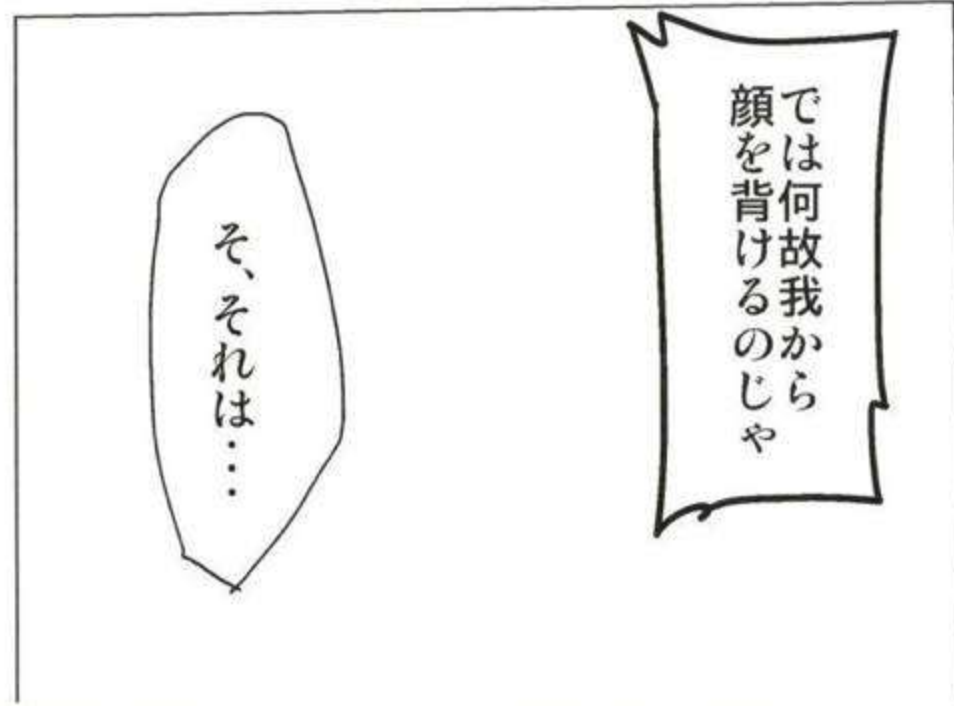 では何故我から
顔を背けるのじゃ
そ、それは・・・